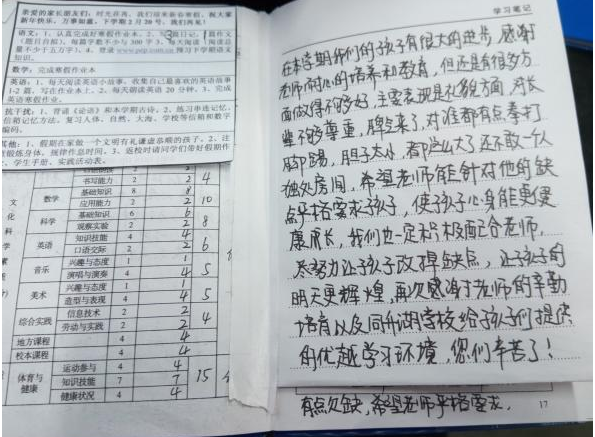 亲爱的家长朋友们:时光荏苒,我们迎来新春寒假,祝大家
新年快乐,万事如意。下学期2月20号,我们再见!
语文:1、认真完成好寒假作业本。2、 篇日记, 篇作文
(题目自拟),每篇字数不少与300字。3、每天阅读(阅读总
量不少于五万字)。4、登录 预习下学期语文
知识。
数学:完成寒假作业本
英语:1、每天阅读英语小故事,收集自己最喜欢的英语故事
1-2 篇,写在作业本上。2、每天朗读英语 20 分钟。3、完成
英语寒假作业。
抗干扰:1、背诵《论语》和本学期古诗。2、练习串连记忆、
信箱记忆方法,复习人体、自然、大海、学校等信箱和数字
编码。
其他:1、假期在家做一个文明有礼谦虚恭顺的孩子。2、注
意锻炼身体,规律作息时间。3、返校时请同学们带好假期作
业、学生手册、实践活动表。
书写能力 2 2 4
数学 基础知识 8 8
应用能力 2 2 10
科学 基础知识 6 6
观察实验 2 2 8
英语 知识技能 4 4
口语交际 2 2 6
音乐 兴趣与态度 1 1
演唱与演奏 4 4 5
美术 兴趣与态度 1 1
造型与表现 4 4 5
综合实践 信息技术 2 2
劳动与实践 2 2 4
地方课程 4 4
校本课程 4 4
体育与健康 运动参与 4 4
知识技能 7 7 15
健康状况 4 4
学习笔记
在本学期我们的孩子有很大的进步,感谢
老师耐心的培养和教育,但还是有很多方
面做得不够好,主要表现是礼貌方面,对长
辈不够尊重,脾气来了,对谁都有点拳打
脚踢,胆子太小,都这么大了还不敢一个人
独处房间,希望老师能针对他的缺
点严格要求孩子,使孩子心身能更健
康成长,我们也一定积极配合老师,
尽努力让孩子改掉缺点,让孩子的
明天更辉煌,再次感谢老师的辛勤
培育以及同升湖学校给孩子们提供
的优越学习环境,您们辛苦了!
有点欠缺,希望老师严格要求.
17